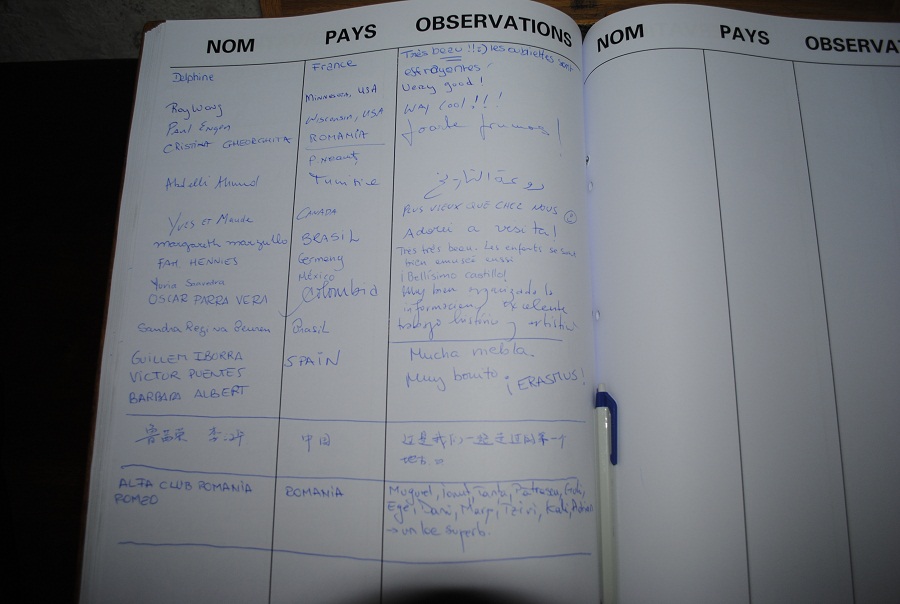 NOM PAYS OBSERVATIONS
Delphine France Très beau !! :) les oubliettes sont
effrayantes!
Minnesota, USA Very good!
Ray Wang Wisconsin, USA Way cool!!!
Paul Engen
CRISTINA GHEORGHITA ROMANIA foarte frumos!
P. Neamț
Abdelli Ahmed Tunisie روعة التاريخ
Yves et Maude CANADA PLUS VIEUX QUE CHEZ NOUS
margareth marzullo BRASIL Adorei a visita!
FAM HENNIES Germany Très très beau. Les enfants se sont
bien amusé aussi
México ¡Bellísimo castillo!
OSCAR PARRA VERA Colombia Muy bien organizada la
información, excelente
trabajo y
Sandra Regina Brasil
GUILLEM IBORRA SPAIN Mucha niebla.
VICTOR PUENTES Muy bonito ¡ERASMUS!
BARBARA ALBERT
中国 这是我们一起走过的第一个
地方
ALFA CLUB ROMANIA ROMANIA Mugurel, Ionut, Petrescu,
ROMEO Dani,
superb.
NOM PAYS OBSERVA